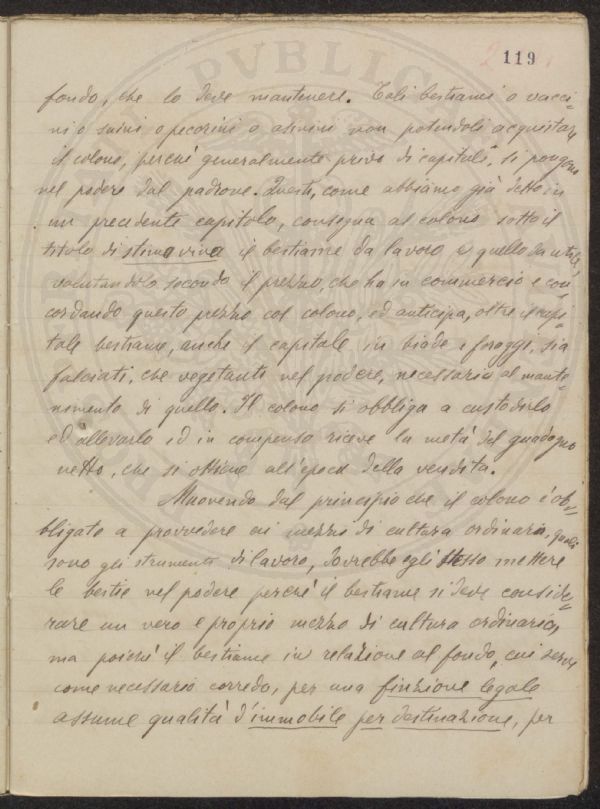 119
fondo, che lo deve mantenere. Tali bestiami o vacci-
ni o suini o pecorini o asinini non potendoli acquistare
il colono, perchè generalmente privo di capitali, si pongono
nel podere dal padrone. Questi, come abbiamo già detto in
un precedente capitolo, consegna al colono sotto il
titolo di stima viva il bestiame da lavoro e quello da utile,
valutandolo secondo il prezzo, che ha in commercio e con-
cordando questo prezzo col colono, ed anticipa, oltre il capi-
tale bestiame, anche il capitale in biade e foraggi, sia
falciati, che vegetanti nel podere, necessario al mante-
nimento di quello. Il colono si obbliga a custodirlo
ed allevarlo ed in compenso riceve la metà del guadagno
netto, che si ottiene all'epoca della vendita.
Muovendo dal principio che il colono è ob-
bligato a provvedere ai mezzi di cultura ordinaria, quali
sono gli strumenti di lavoro, dovrebbe egli stesso mettere
le bestie nel podere perchè il bestiame si deve conside-
rare un vero e proprio mezzo di cultura ordinaria,
ma poichè il bestiame in relazione al fondo, cui serve
come necessario corredo, per una finzione legale
assume qualità d'immobile per destinazione, per
PVBLIC